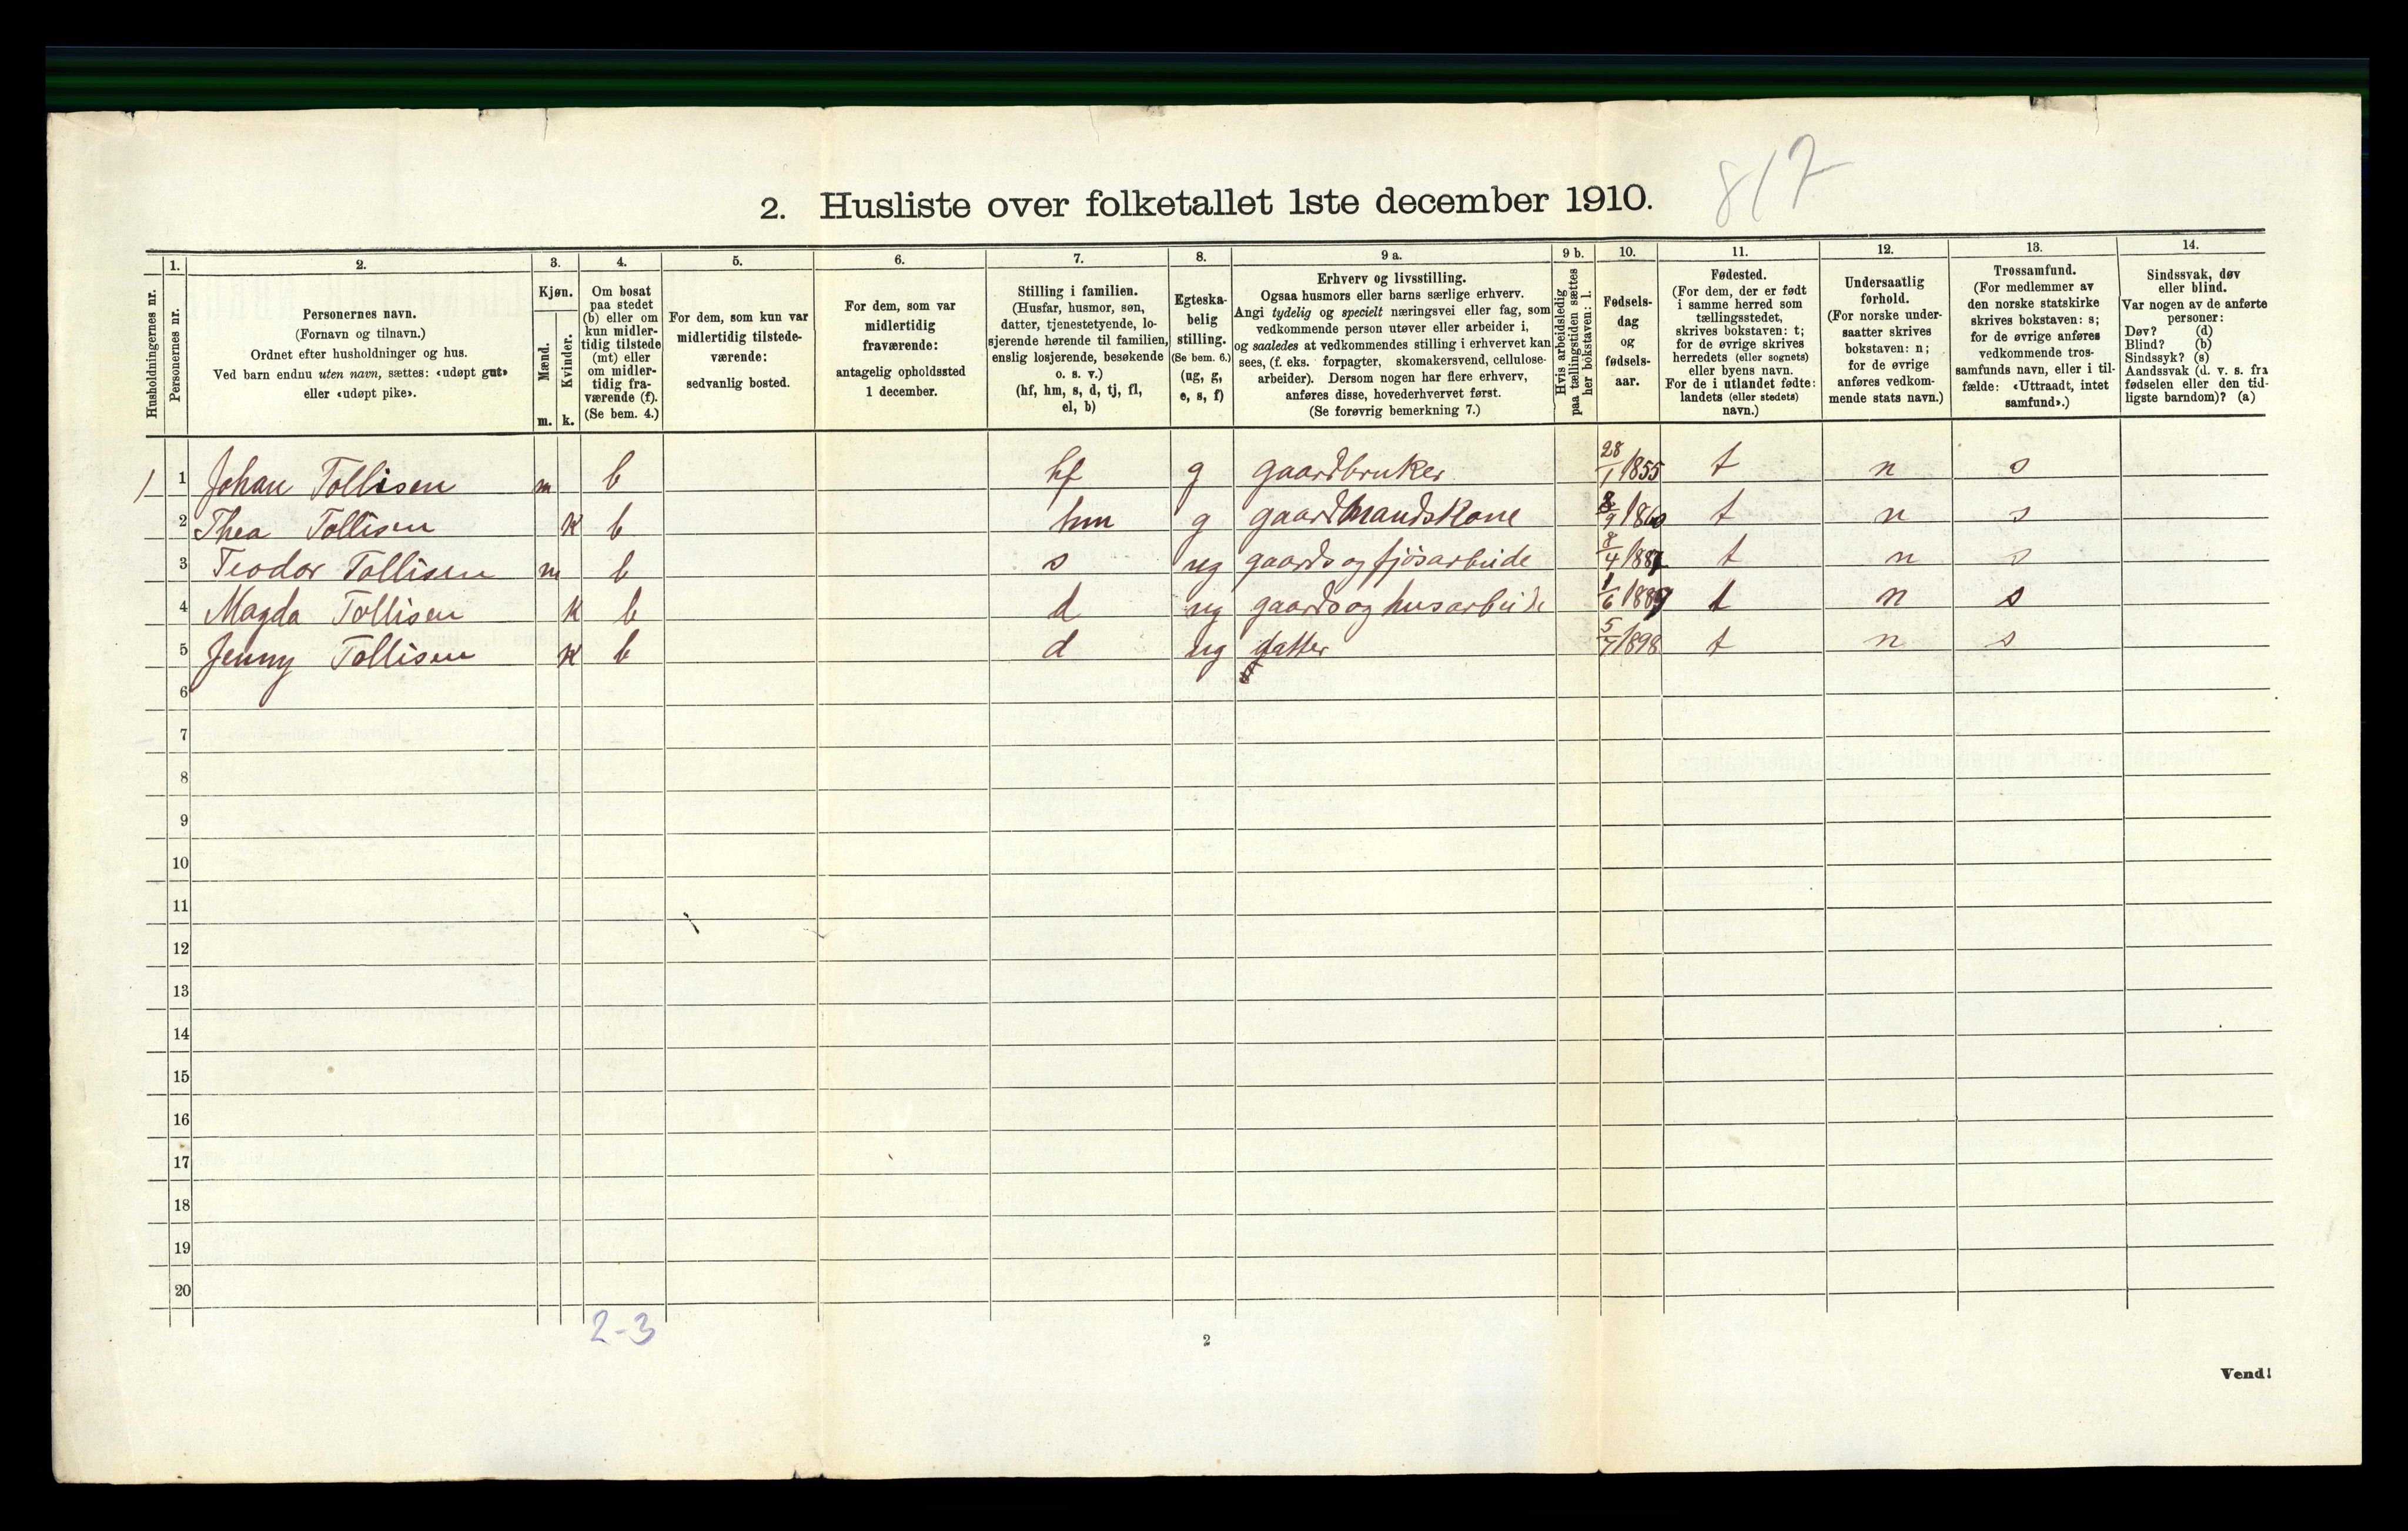 817
2. Husliste over folketallet 1ste december 1910.
Husholdningernes nr.
1.
Personernes nr.
2.
Personernes navn.
(Fornavn og tilnavn.)
Ordnet efter husholdninger og hus.
Ved barn endnu uten navn, sættes: «udøpt gut»
eller «udøpt pike».
3.
Kjøn.
Mænd.
m.
Kvinder.
k.
4.
Om bosat
paa stedet
(b) eller om
kun midler-
tidig tilstede
(mt) eller
om midler-
tidig fra-
værende (f).
(Se bem. 4.)
5.
For dem, som kun var
midlertidig tilstede-
værende:
sedvanlig bosted.
6.
For dem, som var
midlertidig
fraværende:
antagelig opholdssted
1 december.
7.
Stilling i familien.
(Husfar, husmor, søn,
datter, tjenestetyende, lo-
sjerende hørende til familien,
enslig losjerende, besøkende
o. s. v.)
(hf, hm, s, d, tj, fl,
el, b)
8.
Egteska-
belig
stilling.
(Se bem. 6.)
(ug, g,
e, s, f)
9 a.
Erhverv og livsstilling.
Ogsaa husmors eller barns særlige erhverv.
Angi tydelig og specielt næringsvei eller fag, som
vedkommende person utøver eller arbeider i,
og saaledes at vedkommendes stilling i erhvervet kan
sees, (f. eks. forpagter, skomakersvend, cellulose-
arbeider). Dersom nogen har flere erhverv,
anføres disse, hovederhvervet først.
(Se forøvrig bemerkning 7.)
9 b.
Hvis arbeidsledig
paa tællingstiden sættes
her bokstaven: l.
10.
Fødsels-
dag
og
fødsels-
aar.
11.
Fødested.
(For dem, der er født
i samme herred som
tællingsstedet,
skrives bokstaven: t;
for de øvrige skrives
herredets (eller sognets)
eller byens navn.
For de i utlandet fødte:
landets (eller stedets)
navn.)
12.
Undersaatlig
forhold.
(For norske under-
saatter skrives
bokstaven: n;
for de øvrige
anføres vedkom-
mende stats navn.)
13.
Trossamfund.
(For medlemmer av
den norske statskirke
skrives bokstaven: s;
for de øvrige anføres
vedkommende tros-
samfunds navn, eller i til-
fælde: «Uttraadt, intet
samfund».)
14.
Sindssvak, døv
eller blind.
Var nogen av de anførte
personer:
Døv? (d)
Blind? (b)
Sindssyk? (s)
Aandssvak (d. v. s. fra
fødselen eller den tid-
ligste barndom)? (a)
1 1 Johan Tollisen m b hf g gaardbruker 28/1 1855 t n s
2 Thea Tollisen k b hm g gaardmandskone 8/9 1860 t n s
3 Teodor Tollisen m b s ug gaards og fjøsarbeide 8/4 1887 t n s
4 Magda Tollisen k b d ug gaards og husarbeide 1/6 1889 t n s
5 Jenny Tollisen k b d ug datter 5/7 1898 t n s
6
7
8
9
10
11
12
13
14
15
16
17
18
19
20
2-3
2
Vend!